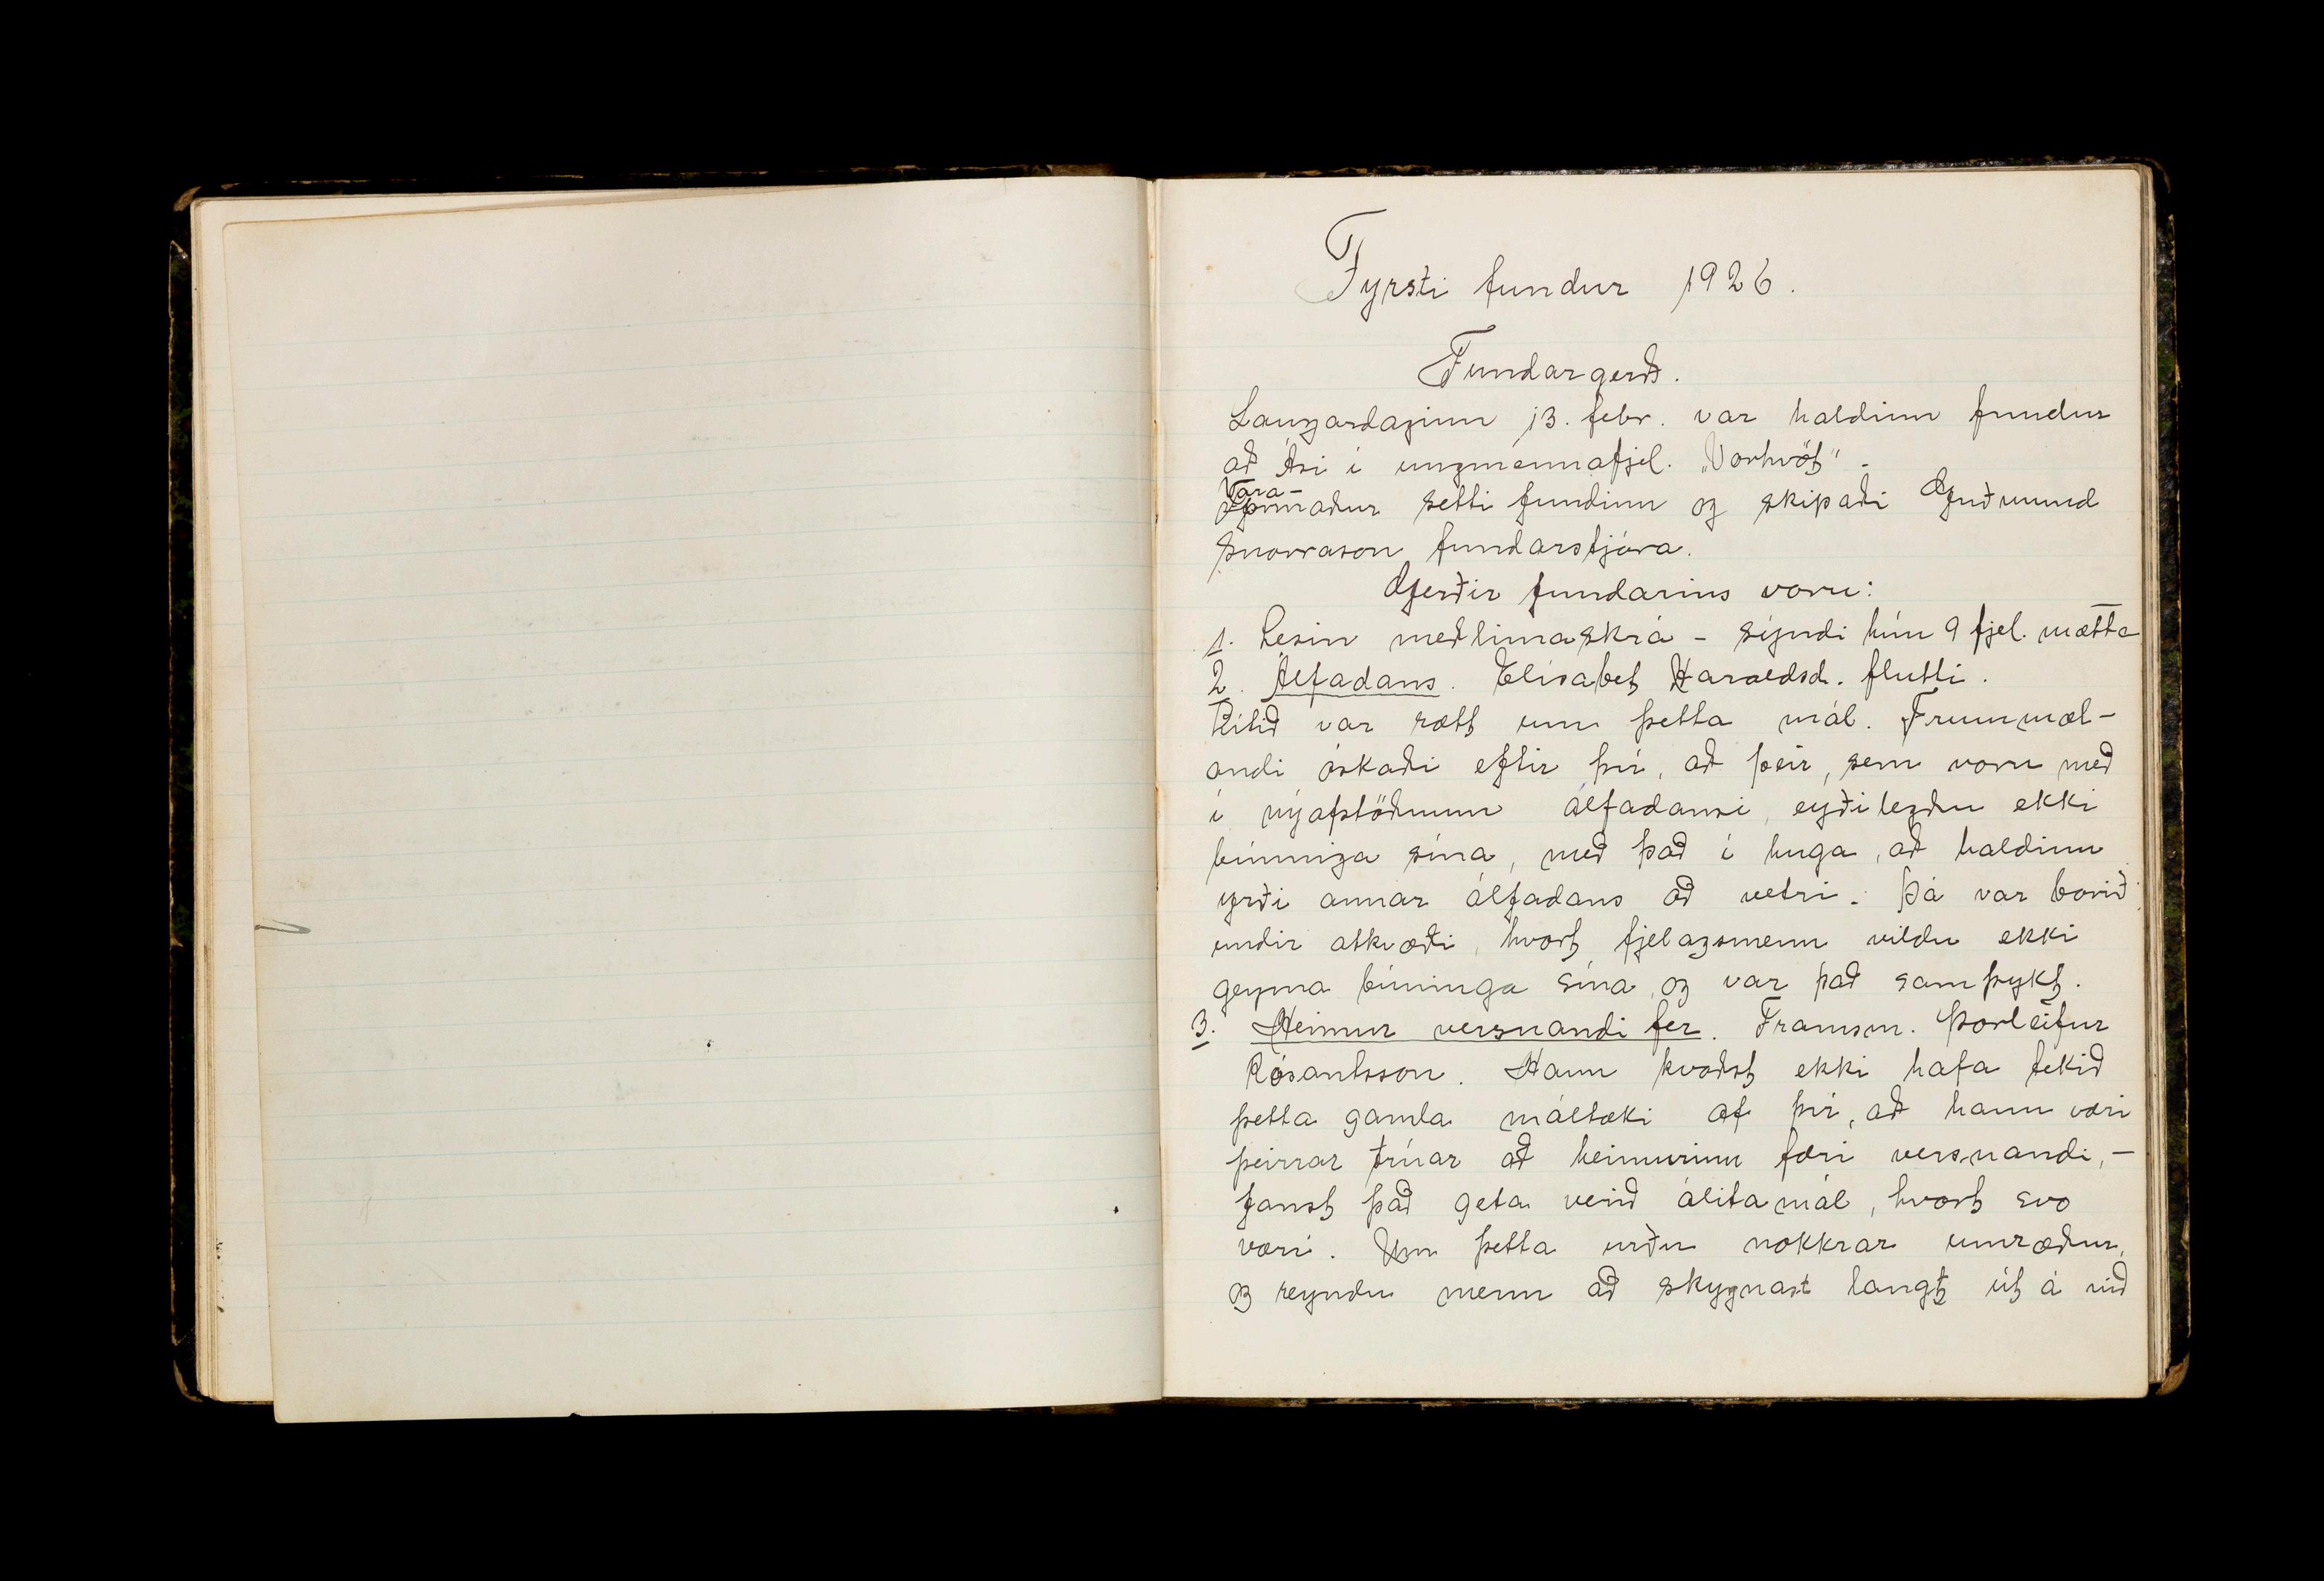 Fyrsti fundur 1926.
Fundargerð.
Laugardaginn 13. febr. var haldinn fundur
að Ási í ungmennafjel. „Vorhvöt“.
Vara-
formaður setti fundinn og skipaði Guðmund
Snorrason fundarstjóra.
Gerðir fundarins voru:
1. Lesin meðlimaskrá - sýndi hún 9 fjel. mætta
2. Álfadans. Elísabet Haraldsd. flutti.
Lítið var rætt um þetta mál. Frummæl-
andi óskaði eftir því, að þeir, sem voru með
í nýafstöðnum álfadansi, eyðilegðu ekki
búninga sína, með það í huga, að haldinn
yrði annar álfadans að vetri. Þá var borið
undir atkvæði, hvort fjelagsmenn vildu ekki
geyma búninga sína, og var það samþykt.
3. Heimur versnandi fer. Framsm. Þorleifur
Rósantsson. Hann kvaðst ekki hafa tekið
þetta gamla máltæki af því, að hann væri
þeirrar trúar að heimurinn færi versnandi, -
fanst það geta verið álitamál, hvort svo
væri. Um þetta urðu nokkrar umræður,
og reyndu menn að skygnast langt út á við